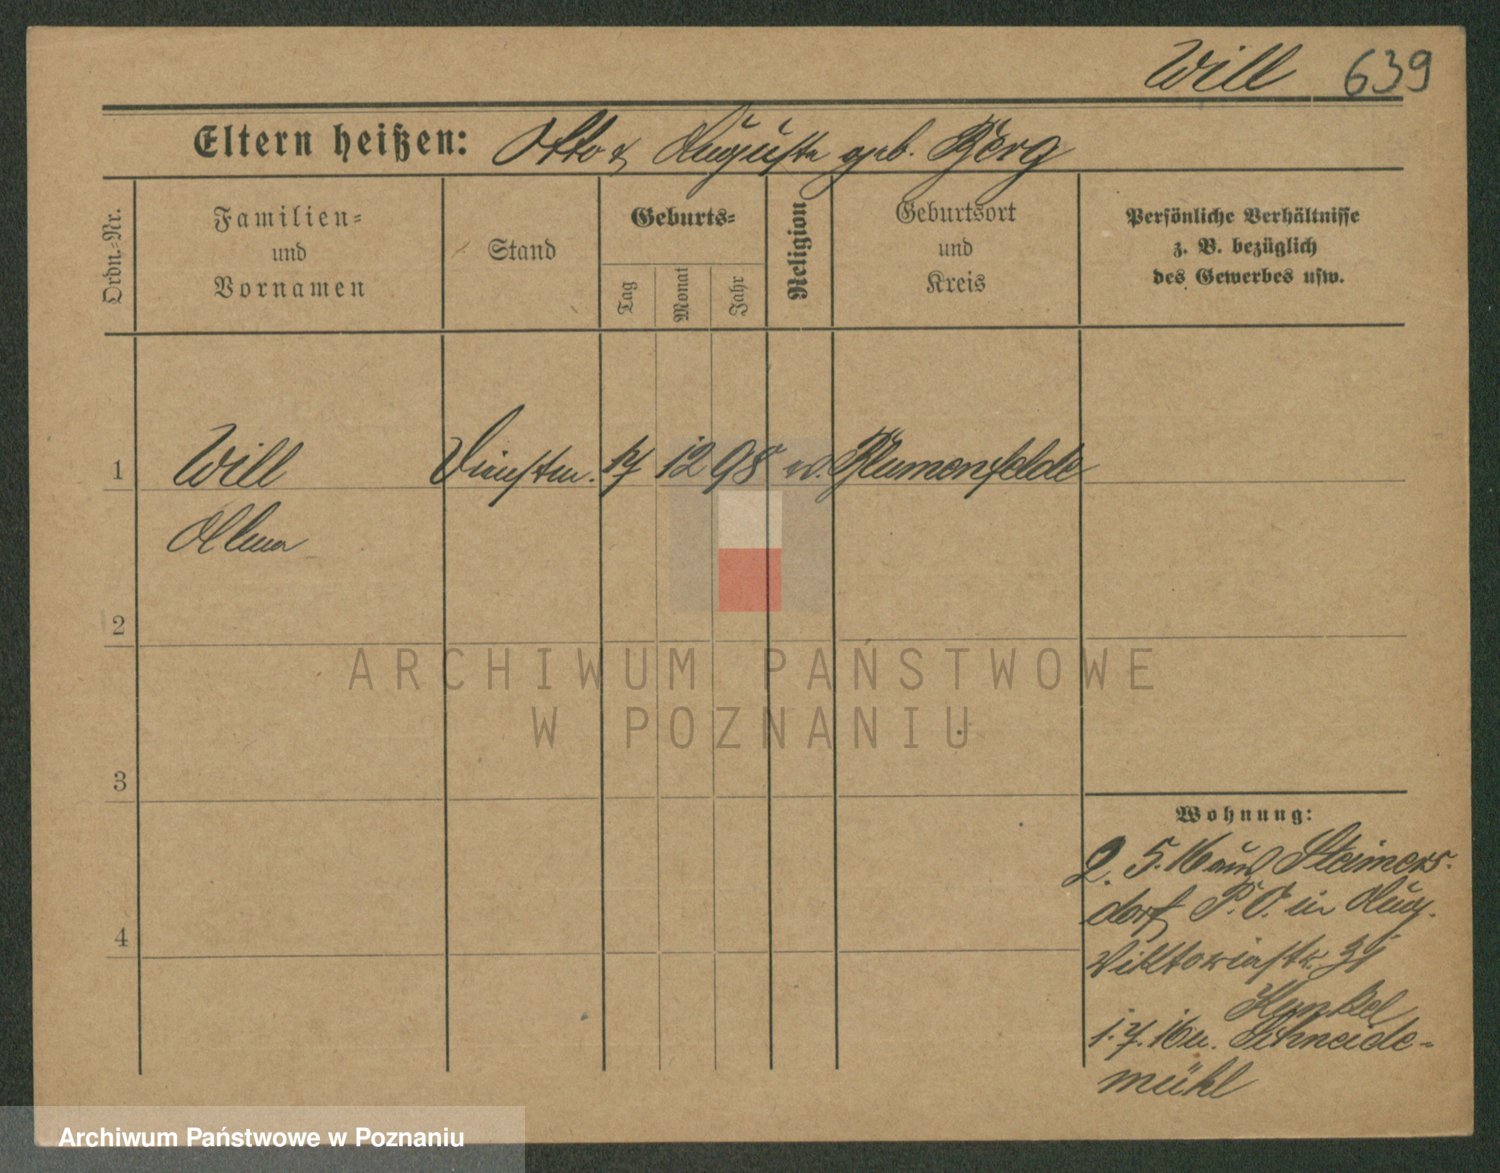 Will 639
Eltern heißen: Otto & Auguste geb. Berg
Ordn.-Nr.
Familien-
und
Vornamen
Stand
Geburts-
Tag
Monat
Jahr
Religion
Geburtsort
und
Kreis
Persönliche Verhältnisse
z. B. bezüglich
des Gewerbes usw.
1 Will 17 12 98 Blumenfelde
Alma
2
3
4
Wohnung:
2. 5. 16 aus
dorf P. O. in Aug.
Viktoriastr.
Kunkel
1. 7. 16 n. Schneide-
mühl
ARCHIWUM PAŃSTWOWE
W POZNANIU
Archiwum Państwowe w Poznaniu